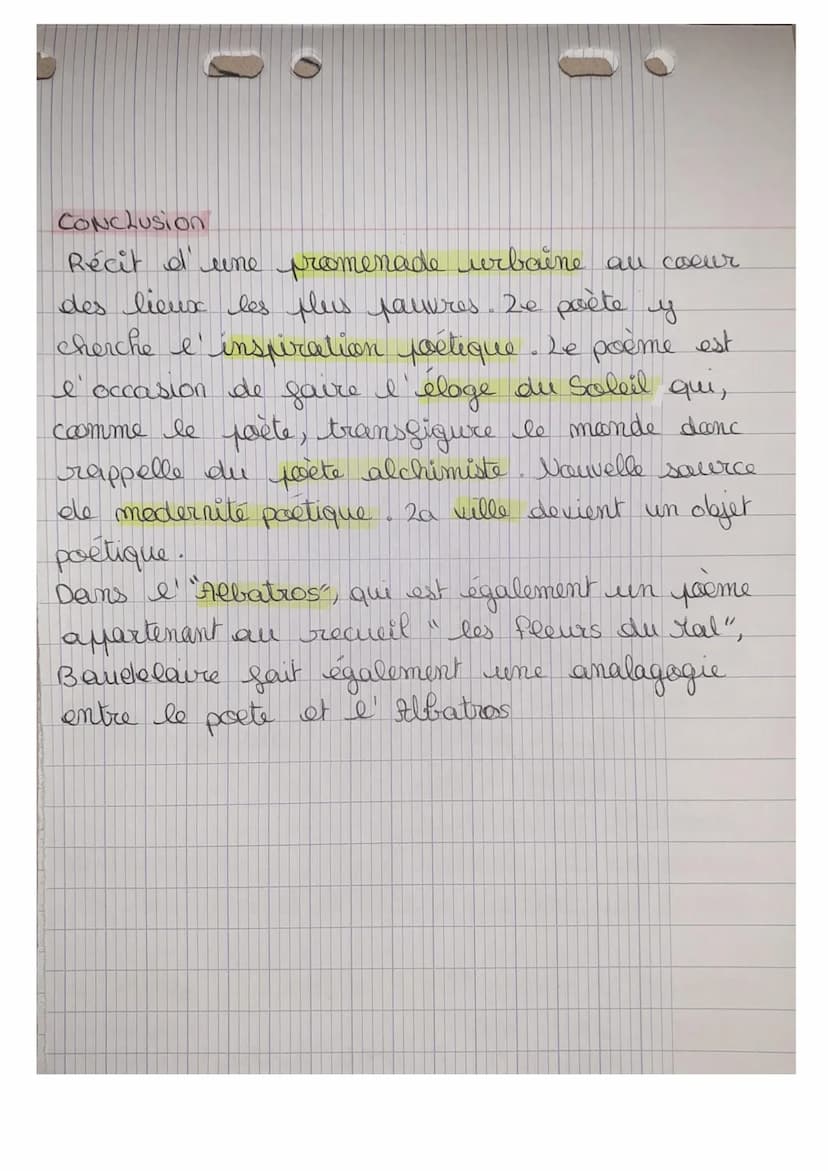 CONCLUSION
Récit d'une promenade urbaine au coeur
des lieux les plus pauvres. Le poète y
cherche l'inspiration poétique. Le poème est
l'occasion de faire l'éloge du Soleil qui,
comme le poète, transfigure le monde donc
rappelle du poète alchimiste. Nouvelle source
de modernité poétique. La ville devient un objet
poétique.
Dans l'"Albatros", qui est également un poème
appartenant au recueil "les fleurs du Mal",
Baudelaire fait également une analagogie
entre le poete et l'Albatros